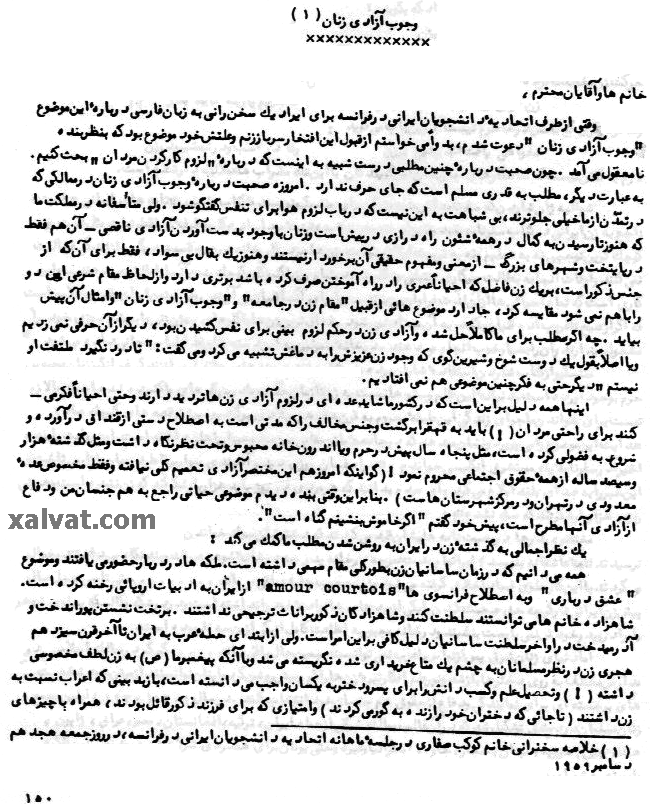 وجوب آزادی زنان (۱)
xxxxxxxxxxxxx
خانم ها و آقایان محترم ،
وقتی از طرف اتحادیهٔ دانشجویان ایرانی در فرانسه برای ایراد یك سخن رانی به زبان فارسی دربارهٔ این موضوع
"وجوب آزادی زنان" دعوت شدم ، بدواً می خواستم از قبول این افتخار سر باز زنم و علتش خود موضوع بود که بنظر بنده
نامعقول می آمد . چون صحبت دربارهٔ چنین مطلبی درست شبیه به اینست که دربارهٔ "لزوم کار کردن مردان" بحث کنیم .
به عبارت دیگر، مطلب به قدری مسلم است که جای حرف ندارد . امروزه صحبت دربارهٔ وجوب آزادی زنان در ممالکی که
در تمدّن از ما خیلی جلوترند، بی شباهت به این نیست که در باب لزوم هوا برای تنفس گفتگو شود . ولی متأسفانه در مملکت ما
که هنوز تا رسیدن به کمال در همهٔ شئون راه درازی در پیش است و زنان با وجود بدست آوردن آزادی ناقصی ــ آن هم فقط
در پایتخت و شهرهای بزرگ ــ از معنی و مفهوم حقیقی آن برخوردار نیستند و هنوز یك بقال بی سواد ، فقط برای آن که از
جنس ذکور است، بر یك زن فاضل که احیاناً عمری را در راه آموختن صرف کرده باشد برتری دارد و از لحاظ مقام شرعی این دو
را باهم نمی شود مقایسه کرد ، جا دارد موضوع هائی از قبیل "مقام زن در جامعه" و "وجوب آزادی زنان" و امثال آن پیش
بیاید . چه اگر مطلب برای ما کاملاً حل شده و آزادی زن در حکم لزوم بینی برای نفس کشیدن بود ، دیگر از آن حرفی نمی زدیم
ویا اصلاً بقول یك دوست شوخ و شیرین گوی که وجود زن عزیزش را به دماغش تشبیه می کرد و می گفت : "تا درد نگیرد ملتفت او
نیستم" دیگر حتی به فکر چنین موضوعی هم نمی افتادیم .
اینها همه دلیل بر این است که در کشور ما شاید عده ای در لزوم آزادی زن ها تردید دارند و حتی احیاناً فکر می ــ
کنند برای راحتی مردان (!) باید به قهقرا برگشت و جنس مخالف را که مدتی است به اصطلاح دستی از قندای درآورده و
شروع به فضولی کرده است، مثل پنجاه سال پیش در حرم و یا اندرون خانه محبوس و تحت نظر نگاه داشت و مثل گذشتهٔ هزار
و سیصد ساله از همهٔ حقوق اجتماعی محروم نمود ! (گو اینکه امروز هم این مختصر آزادی تعمیم کلی نیافته و فقط مخصوص عدهٔ
معدودی در تهران و در مرکز شهرستان هاست ) . بنابراین وقتی بنده دیدم موضوعی حیاتی راجع به هم جنسان من و دفاع
از آزادی آنها مطرح است ، پیش خود گفتم "اگر خاموش بنشینم گناه است" .
یك نظر اجمالی به گذشتهٔ زن در ایران به روشن شدن مطلب ما کمك می کند :
همه می دانیم که در زمان ساسانیان زن بطور کلی مقام مهمی داشته است . ملکه ها در دربار حضور می یافتند و موضوع
"عشق درباری" و به اصطلاح فرانسوی ها "amour courtois" از ایران به ادبیات اروپائی رخنه کرده است .
شاهزاده خانم ها می توانستند سلطنت کنند و شاهزادگان ذکور بر اناث ترجیحی نداشتند . بر تخت نشستن پوراندخت و
آذرمیدخت در اواخر سلطنت ساسانیان دلیل کافی بر این امر است . ولی از ابتدای حملهٔ عرب به ایران تا آخر قرن سیزدهم
هجری زن در نظر مسلمانان به چشم یك متاع خریداری شده نگریسته می شد و با آنکه پیغمبر ما (ص) به زن لطف مخصوصی
داشته (!) و تحصیل علم و کسب دانش را برای پسر و دختر به یکسان واجب می دانسته است ، باز بدبینی که اعراب نسبت به
زن داشتند (تا جائی که دختران خود را زنده به گور می کردند ) و امتیازی که برای فرزند ذکور قائل بودند ، همراه با چیزهای
(۱) خلاصه سخنرانی خانم کوکب صفاری در جلسهٔ ماهانه اتحادیه دانشجویان ایرانی در فرانسه، در روز جمعه هجدهم
دسامبر ۱۹۵۹
۱۵۰
xalvat.com